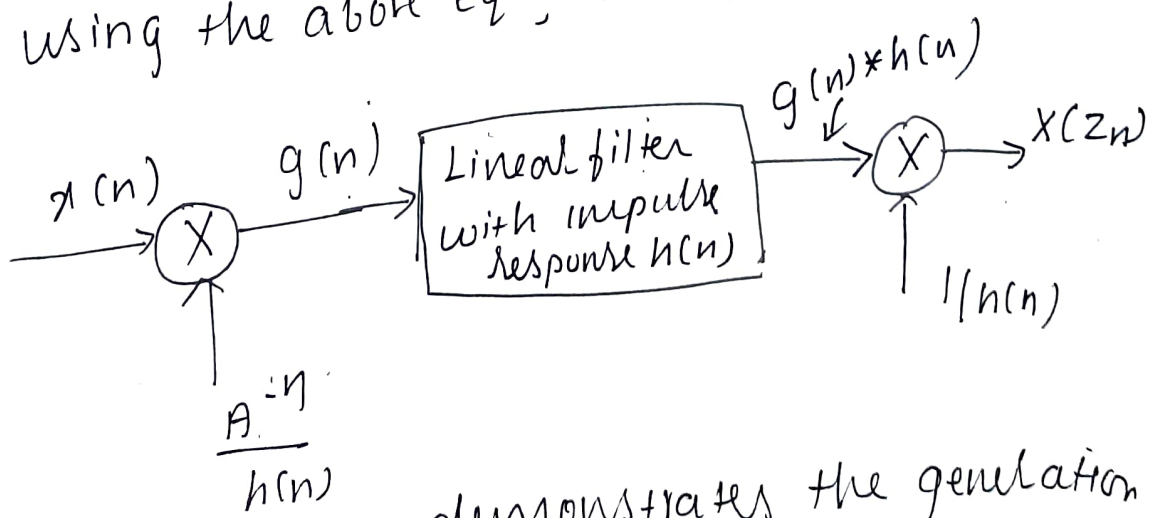 using the above Eq,
g(n)*h(n)
x(n)
g(n)
Linear filter
with impulse
response h(n)
X
X
X(Zn)
1/h(n)
A^-n
h(n)
demonstrates the generation